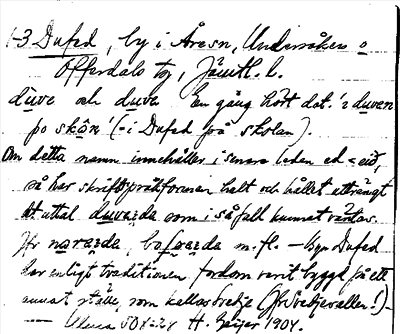 1-3 Dufed, by i Åresn, Undersåkers o
Offerdals tg, Jämtl. l.
düve och duve En gång hört dat. 'i duven
po skōn' (= i Dufed på skolan).
Om detta namn innehåller i senare leden ed = eið,
så har skriftspråksformen helt och hållet utträngt
ett uttal duvæida som i så fall kunnat väntas.
Jfr naræida, bafræida m. fl. — Byn Dufed
har enligt traditionen fordom varit byggd på ett
annat ställe, som kallas Svedje (Jfr Svedjevallen!).—
H. Geijer 1904.